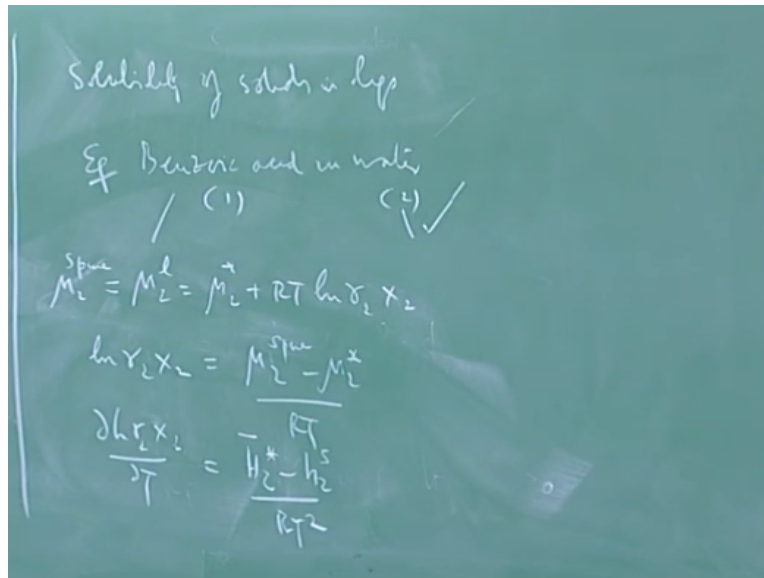 Solubility of solids in liqs
Eg Benzoic acid in water
(1) (2)
μ₂^{s pure} = μ₂^l = μ₂^* + RT ln γ₂ x₂
ln γ₂ x₂ = (μ₂^{s pure} - μ₂^*) / RT
∂ln γ₂ x₂ / ∂T = (H̄₂^* - h₂^s) / RT²